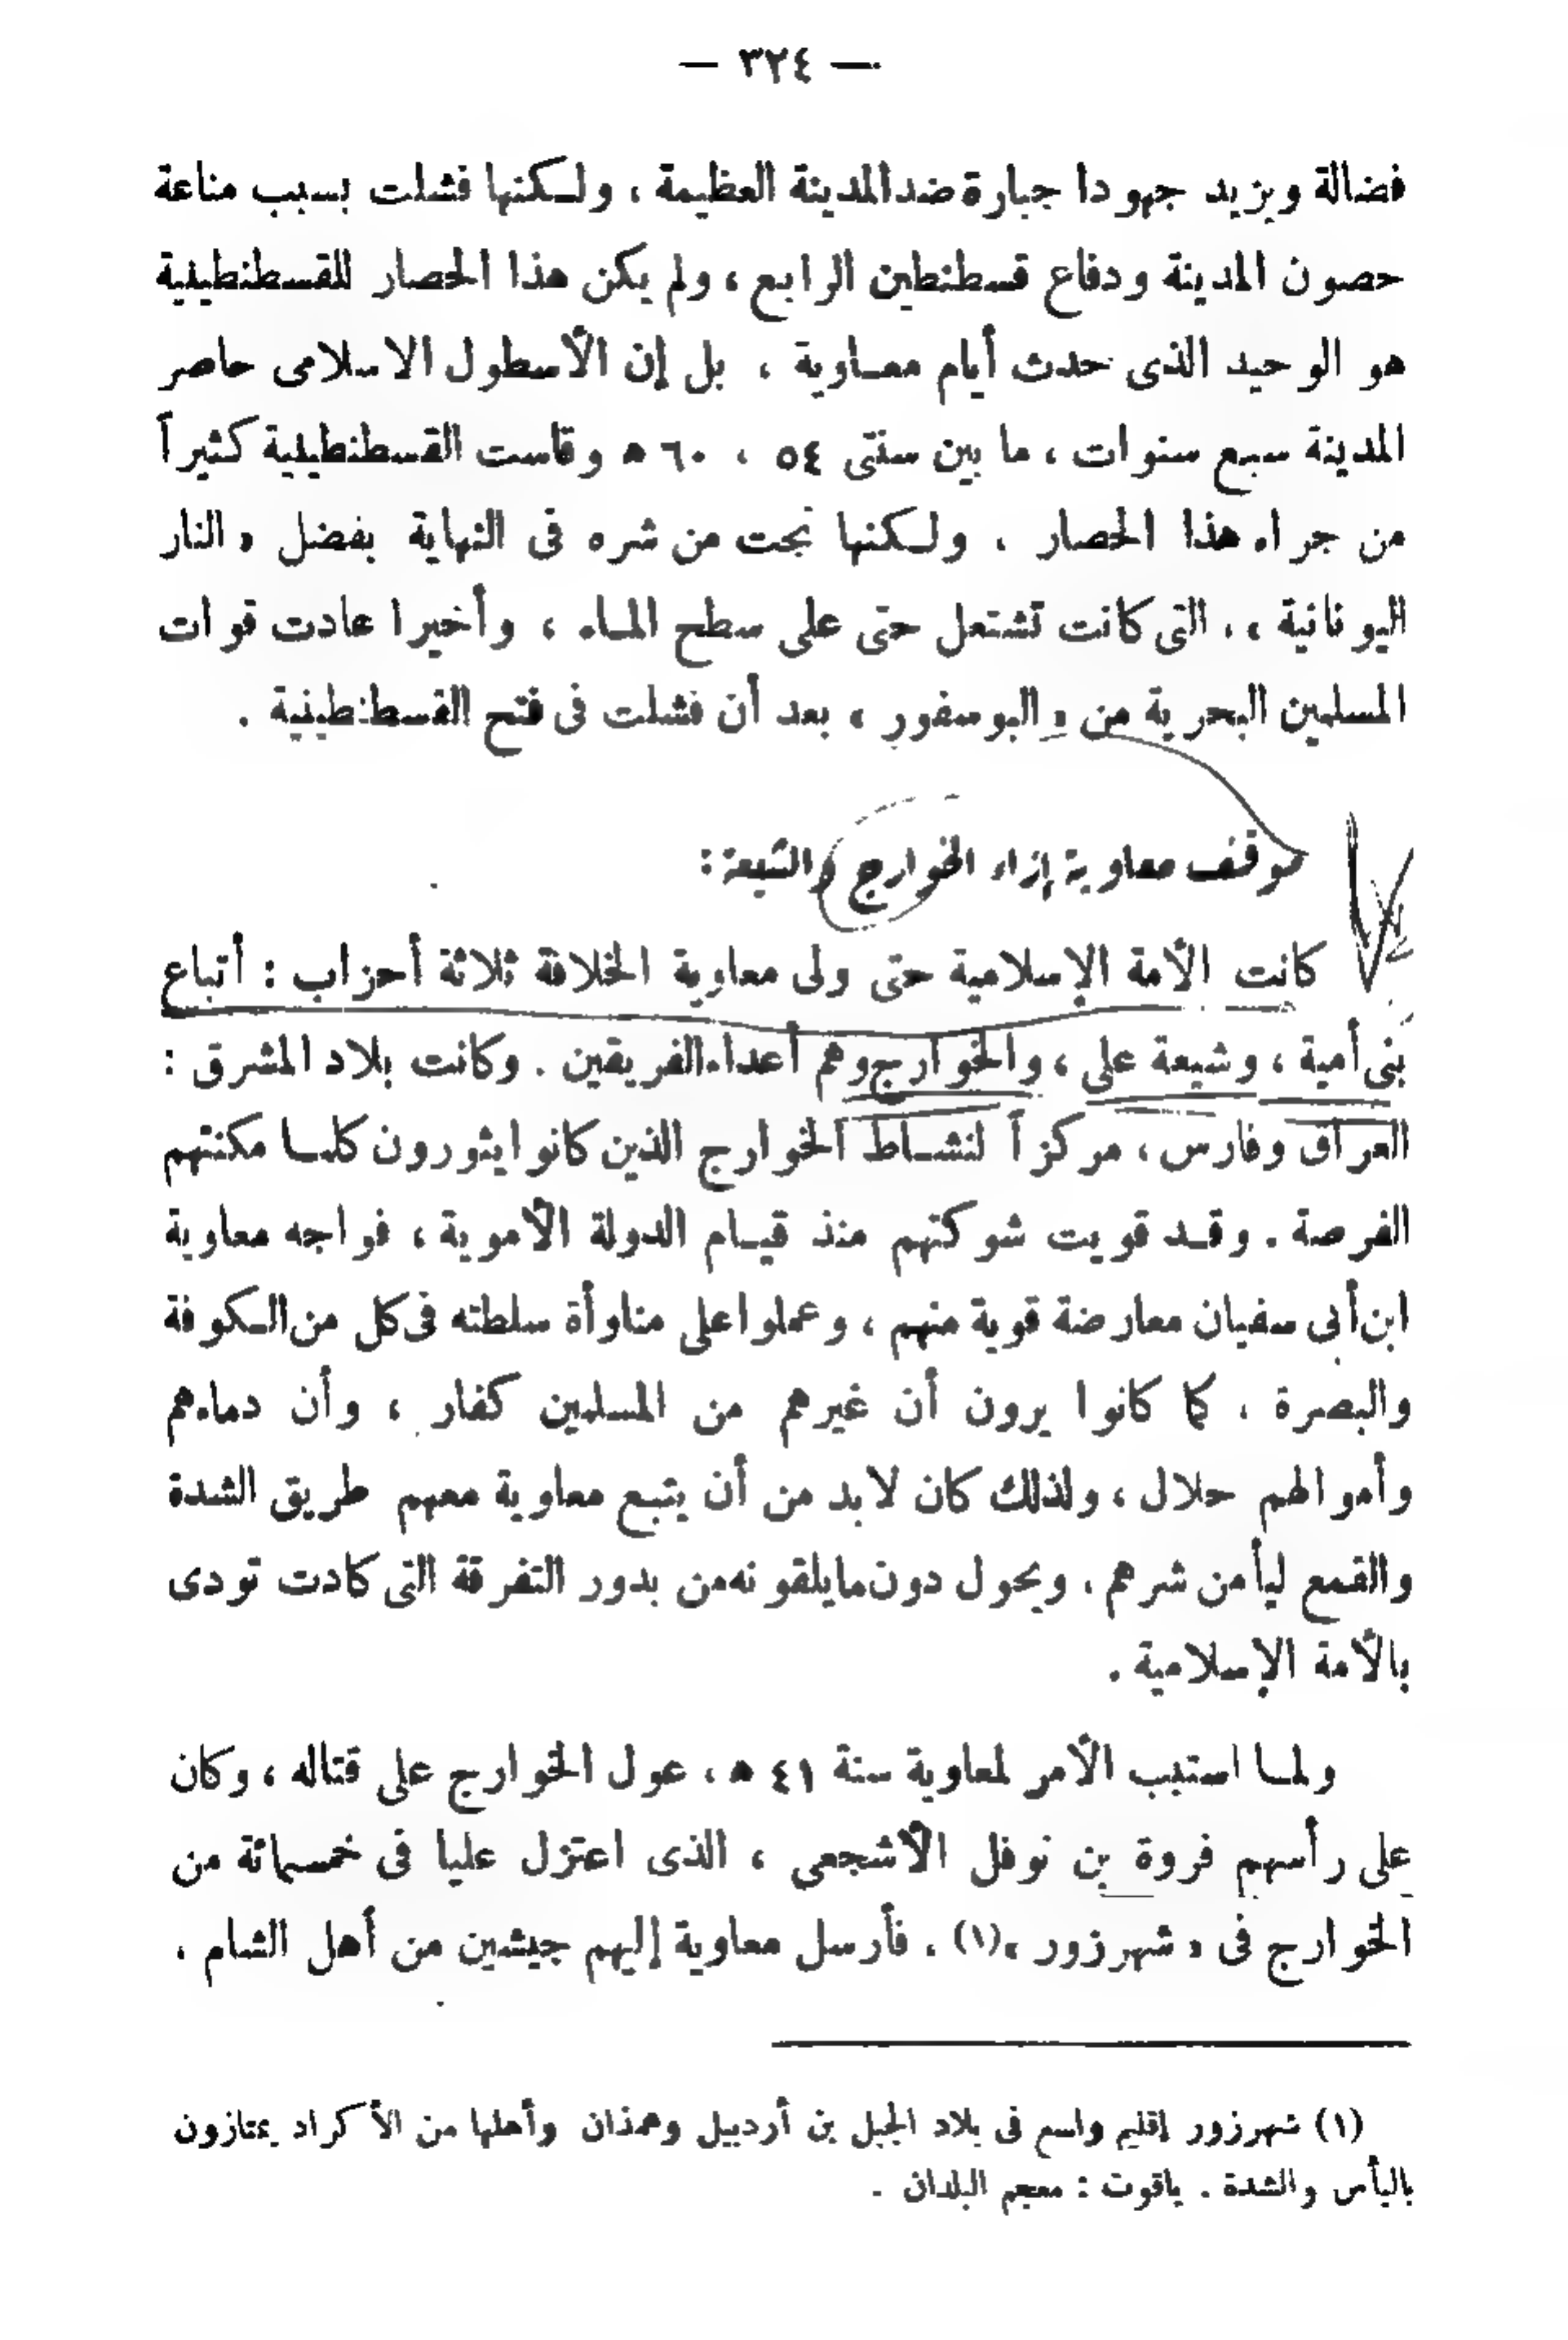 — ٣٢٤ —
فضالة ويزيد جهودا جبارة ضد المدينة العظيمة ، ولكنها فشلت بسبب مناعة
حصون المدينة ودفاع قسطنطين الرابع ، ولم يكن هذا الحصار للقسطنطينية
هو الوحيد الذى حدث أيام معاوية ، بل إن الأسطول الاسلامى حاصر
المدينة سبع سنوات ، ما بين سنتى ٥٤ ، ٦٠ ه وقاست القسطنطينية كثيراً
من جراء هذا الحصار . ولكنها نجت من شره فى النهاية بفضل « النار
اليونانية » . التى كانت تشتعل حتى على سطح الماء ، وأخيرا عادت قوات
المسلمين البحرية من « البوسفور » بعد أن فشلت فى فتح القسطنطينية .
موقف معاوية إزاء الخوارج والشيعة :
كانت الأمة الإسلامية حتى ولى معاوية الخلافة ثلاثة أحزاب : أتباع
بنى أمية ، وشيعة على ، والخوارج وهم أعداء الفريقين . وكانت بلاد المشرق :
العراق وفارس ، مركزاً لنشاط الخوارج الذين كانوا يثورون كلما مكنتهم
الفرصة . وقد قويت شوكتهم منذ قيام الدولة الأموية ، فواجه معاوية
ابن أبى سفيان معارضة قوية منهم ، وعملوا على مناوأة سلطته فى كل من الكوفة
والبصرة ، كما كانوا يرون أن غيرهم من المسلمين كفار ، وأن دماءهم
وأموالهم حلال ، ولذلك كان لا بد من أن يتبع معاوية معهم طريق الشدة
والقمع ليأمن شرهم . ويحول دون ما يلقونه من بدور التفرقة التى كادت تودى
بالأمة الإسلامية .
ولما استتب الأمر لمعاوية سنة ٤١ ه ، عول الخوارج على قتاله ، وكان
على رأسهم فروة بن نوفل الأشجعى ، الذى اعتزل عليا فى خمسمائة من
الخوارج فى « شهرزور »(١) . فأرسل معاوية إليهم جيشين من أهل الشام .
(١) شهرزور إقليم واسع فى بلاد الجبل بن أردبيل وهمذان وأهلها من الأكراد يمتازون
بالبأس والشدة . ياقوت : معجم البلدان .